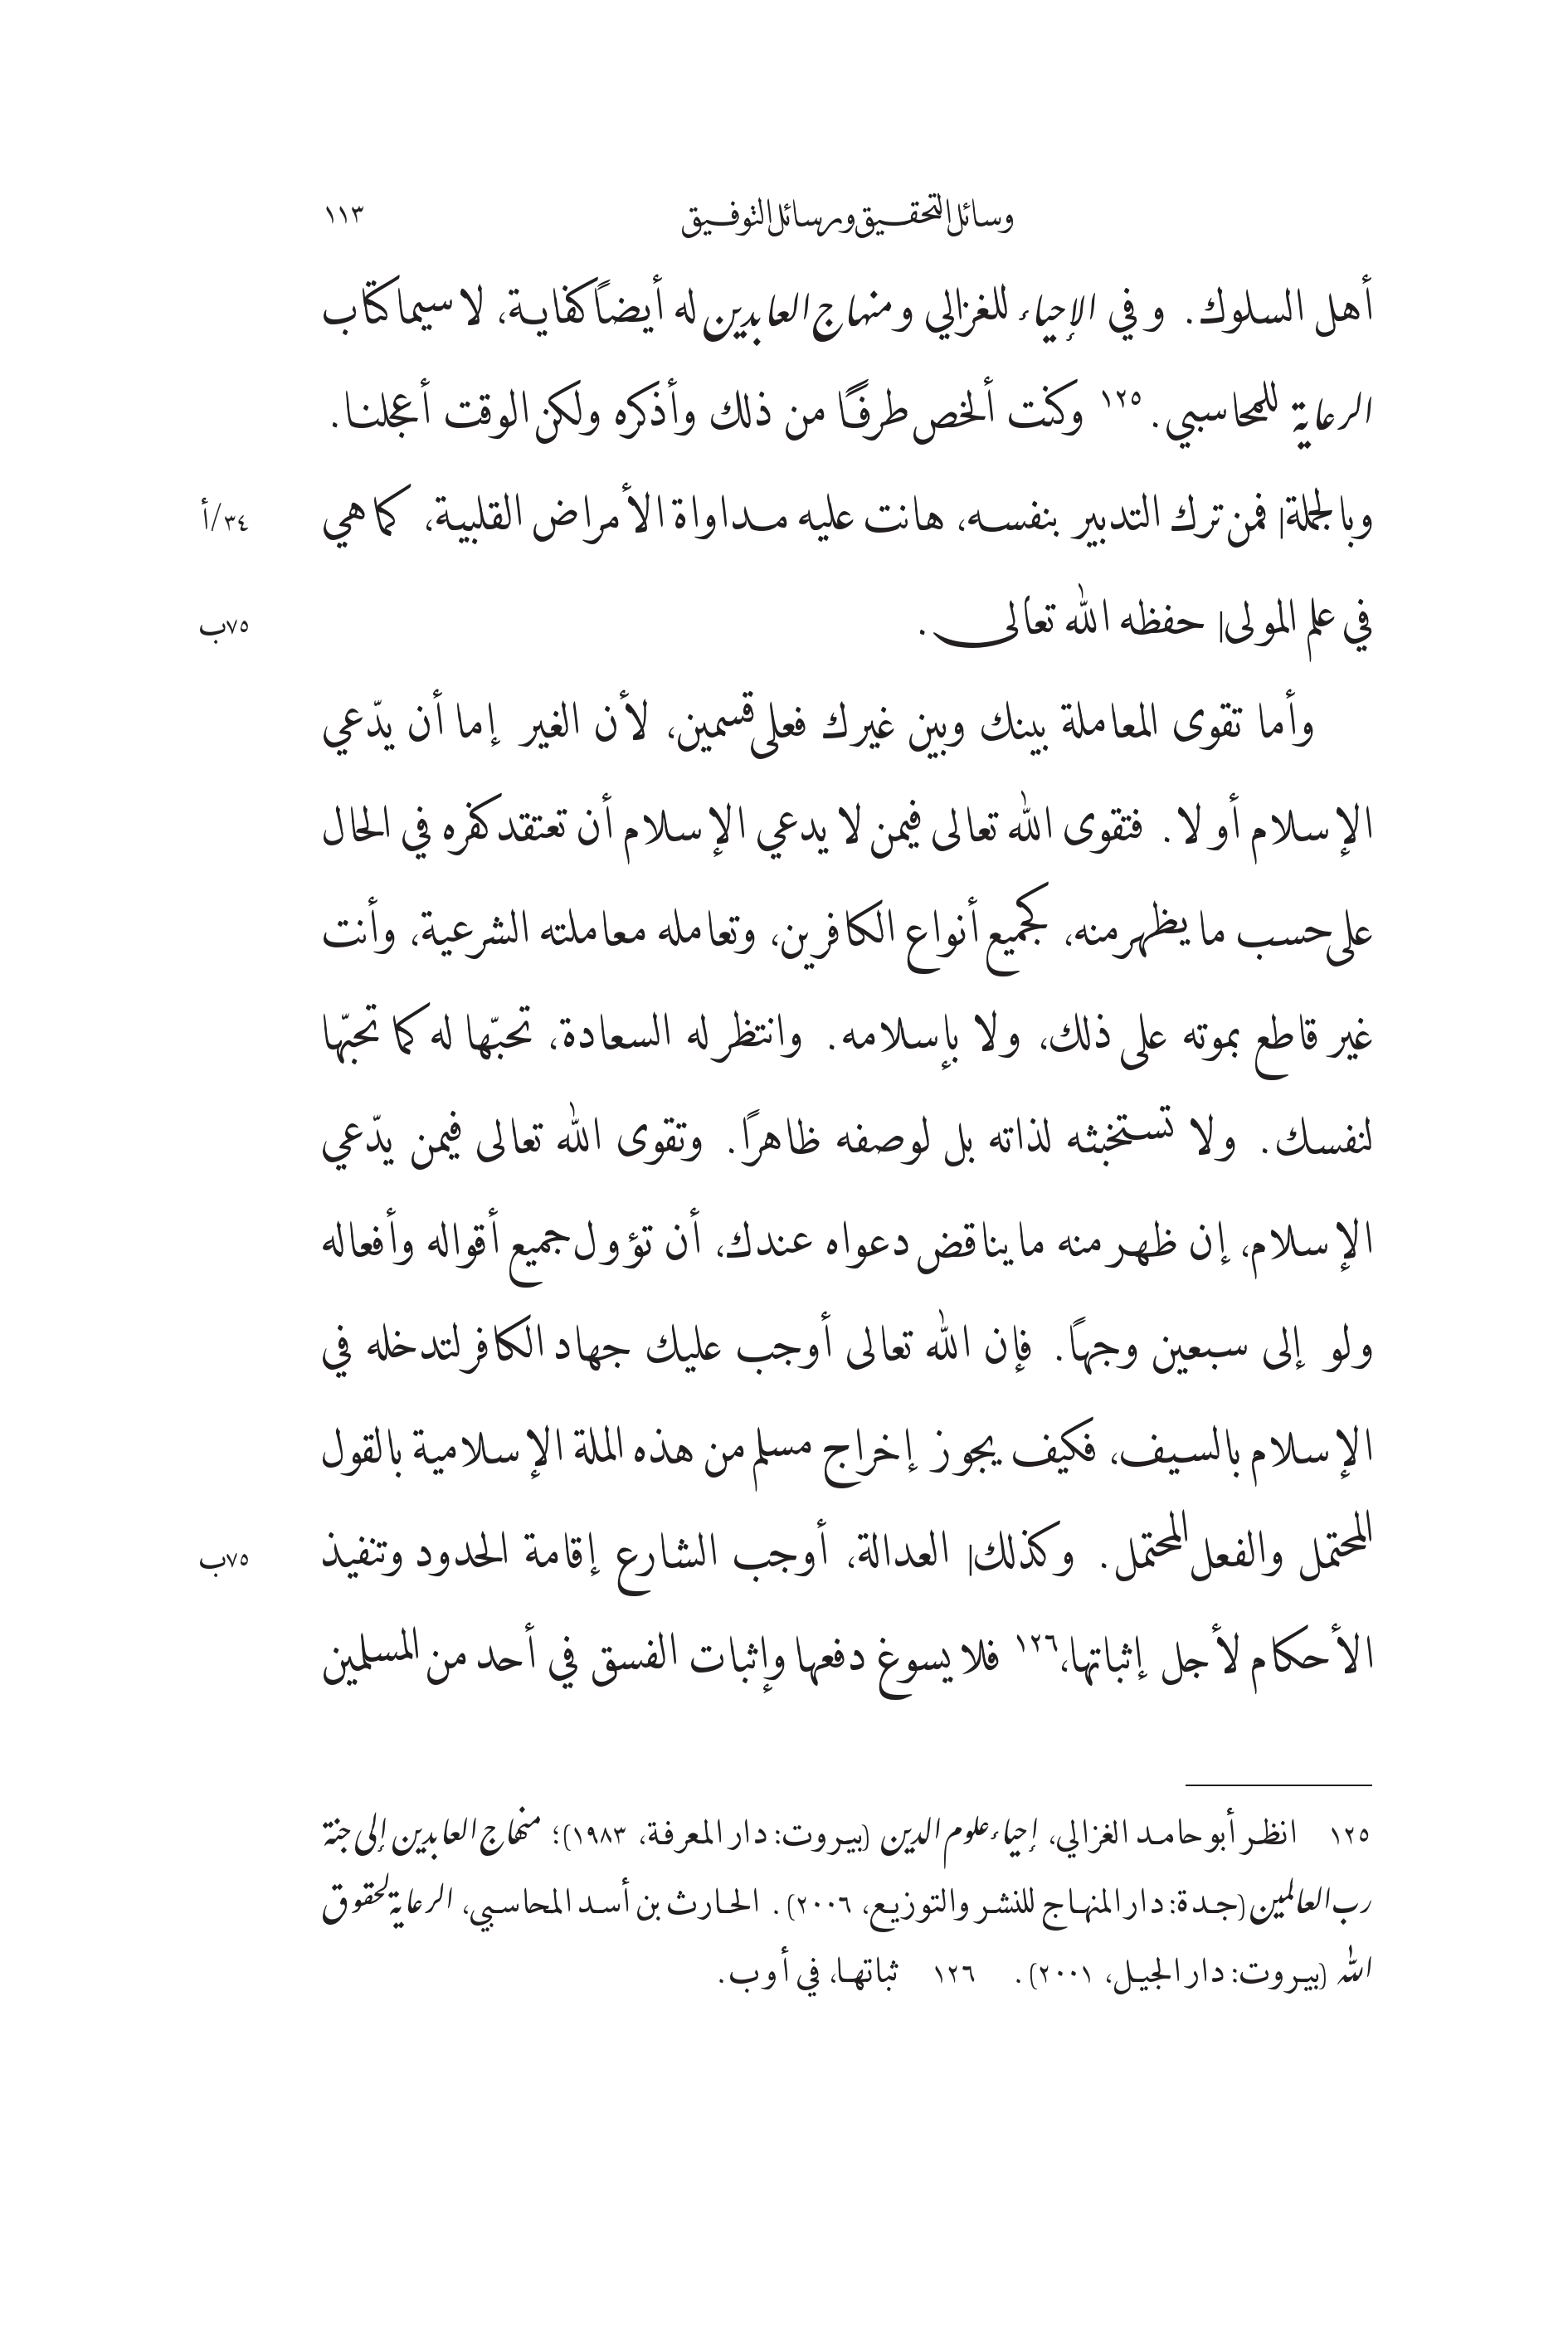 وسائل التحقيق ورسائل التوفيق ١١٣
أهل السلوك. وفي الإحياء للغزالي ومنهاج العابدين له أيضاً كفاية، لا سيما كتاب
الرعاية للمحاسبي.١٢٥ وكنت ألخص طرفًا من ذلك وأذكره ولكن الوقت أعجلنا.
وبالجملة| فمن ترك التدبير بنفسه، هانت عليه مداواة الأمراض القلبية، كما هي ٣٤/أ
في علم المولى| حفظه الله تعالى. ٧٥ب
وأما تقوى المعاملة بينك وبين غيرك فعلى قسمين، لأن الغير إما أن يدّعي
الإسلام أو لا. فتقوى الله تعالى فيمن لا يدعي الإسلام أن تعتقد كفره في الحال
على حسب ما يظهر منه، كجميع أنواع الكافرين، وتعامله معاملته الشرعية، وأنت
غير قاطع بموته على ذلك، ولا بإسلامه. وانتظر له السعادة، تحبّها له كما تحبّها
لنفسك. ولا تستخبثه لذاته بل لوصفه ظاهرًا. وتقوى الله تعالى فيمن يدّعي
الإسلام، إن ظهر منه ما يناقض دعواه عندك، أن تؤول جميع أقواله وأفعاله
ولو إلى سبعين وجهًا. فإن الله تعالى أوجب عليك جهاد الكافر لتدخله في
الإسلام بالسيف، فكيف يجوز إخراج مسلم من هذه الملة الإسلامية بالقول
المحتمل والفعل المحتمل. وكذلك| العدالة، أوجب الشارع إقامة الحدود وتنفيذ ٧٥ب
الأحكام لأجل إثباتها،١٢٦ فلا يسوغ دفعها وإثبات الفسق في أحد من المسلمين
١٢٥ انظر أبو حامد الغزالي، إحياء علوم الدين (بيروت: دار المعرفة، ١٩٨٣)؛ منهاج العابدين إلى جنة
رب العالمين (جدة: دار المنهاج للنشر والتوزيع، ٢٠٠٦). الحارث بن أسد المحاسبي، الرعاية لحقوق
الله (بيروت: دار الجيل، ٢٠٠١). ١٢٦ ثباتها، في أ و ب.